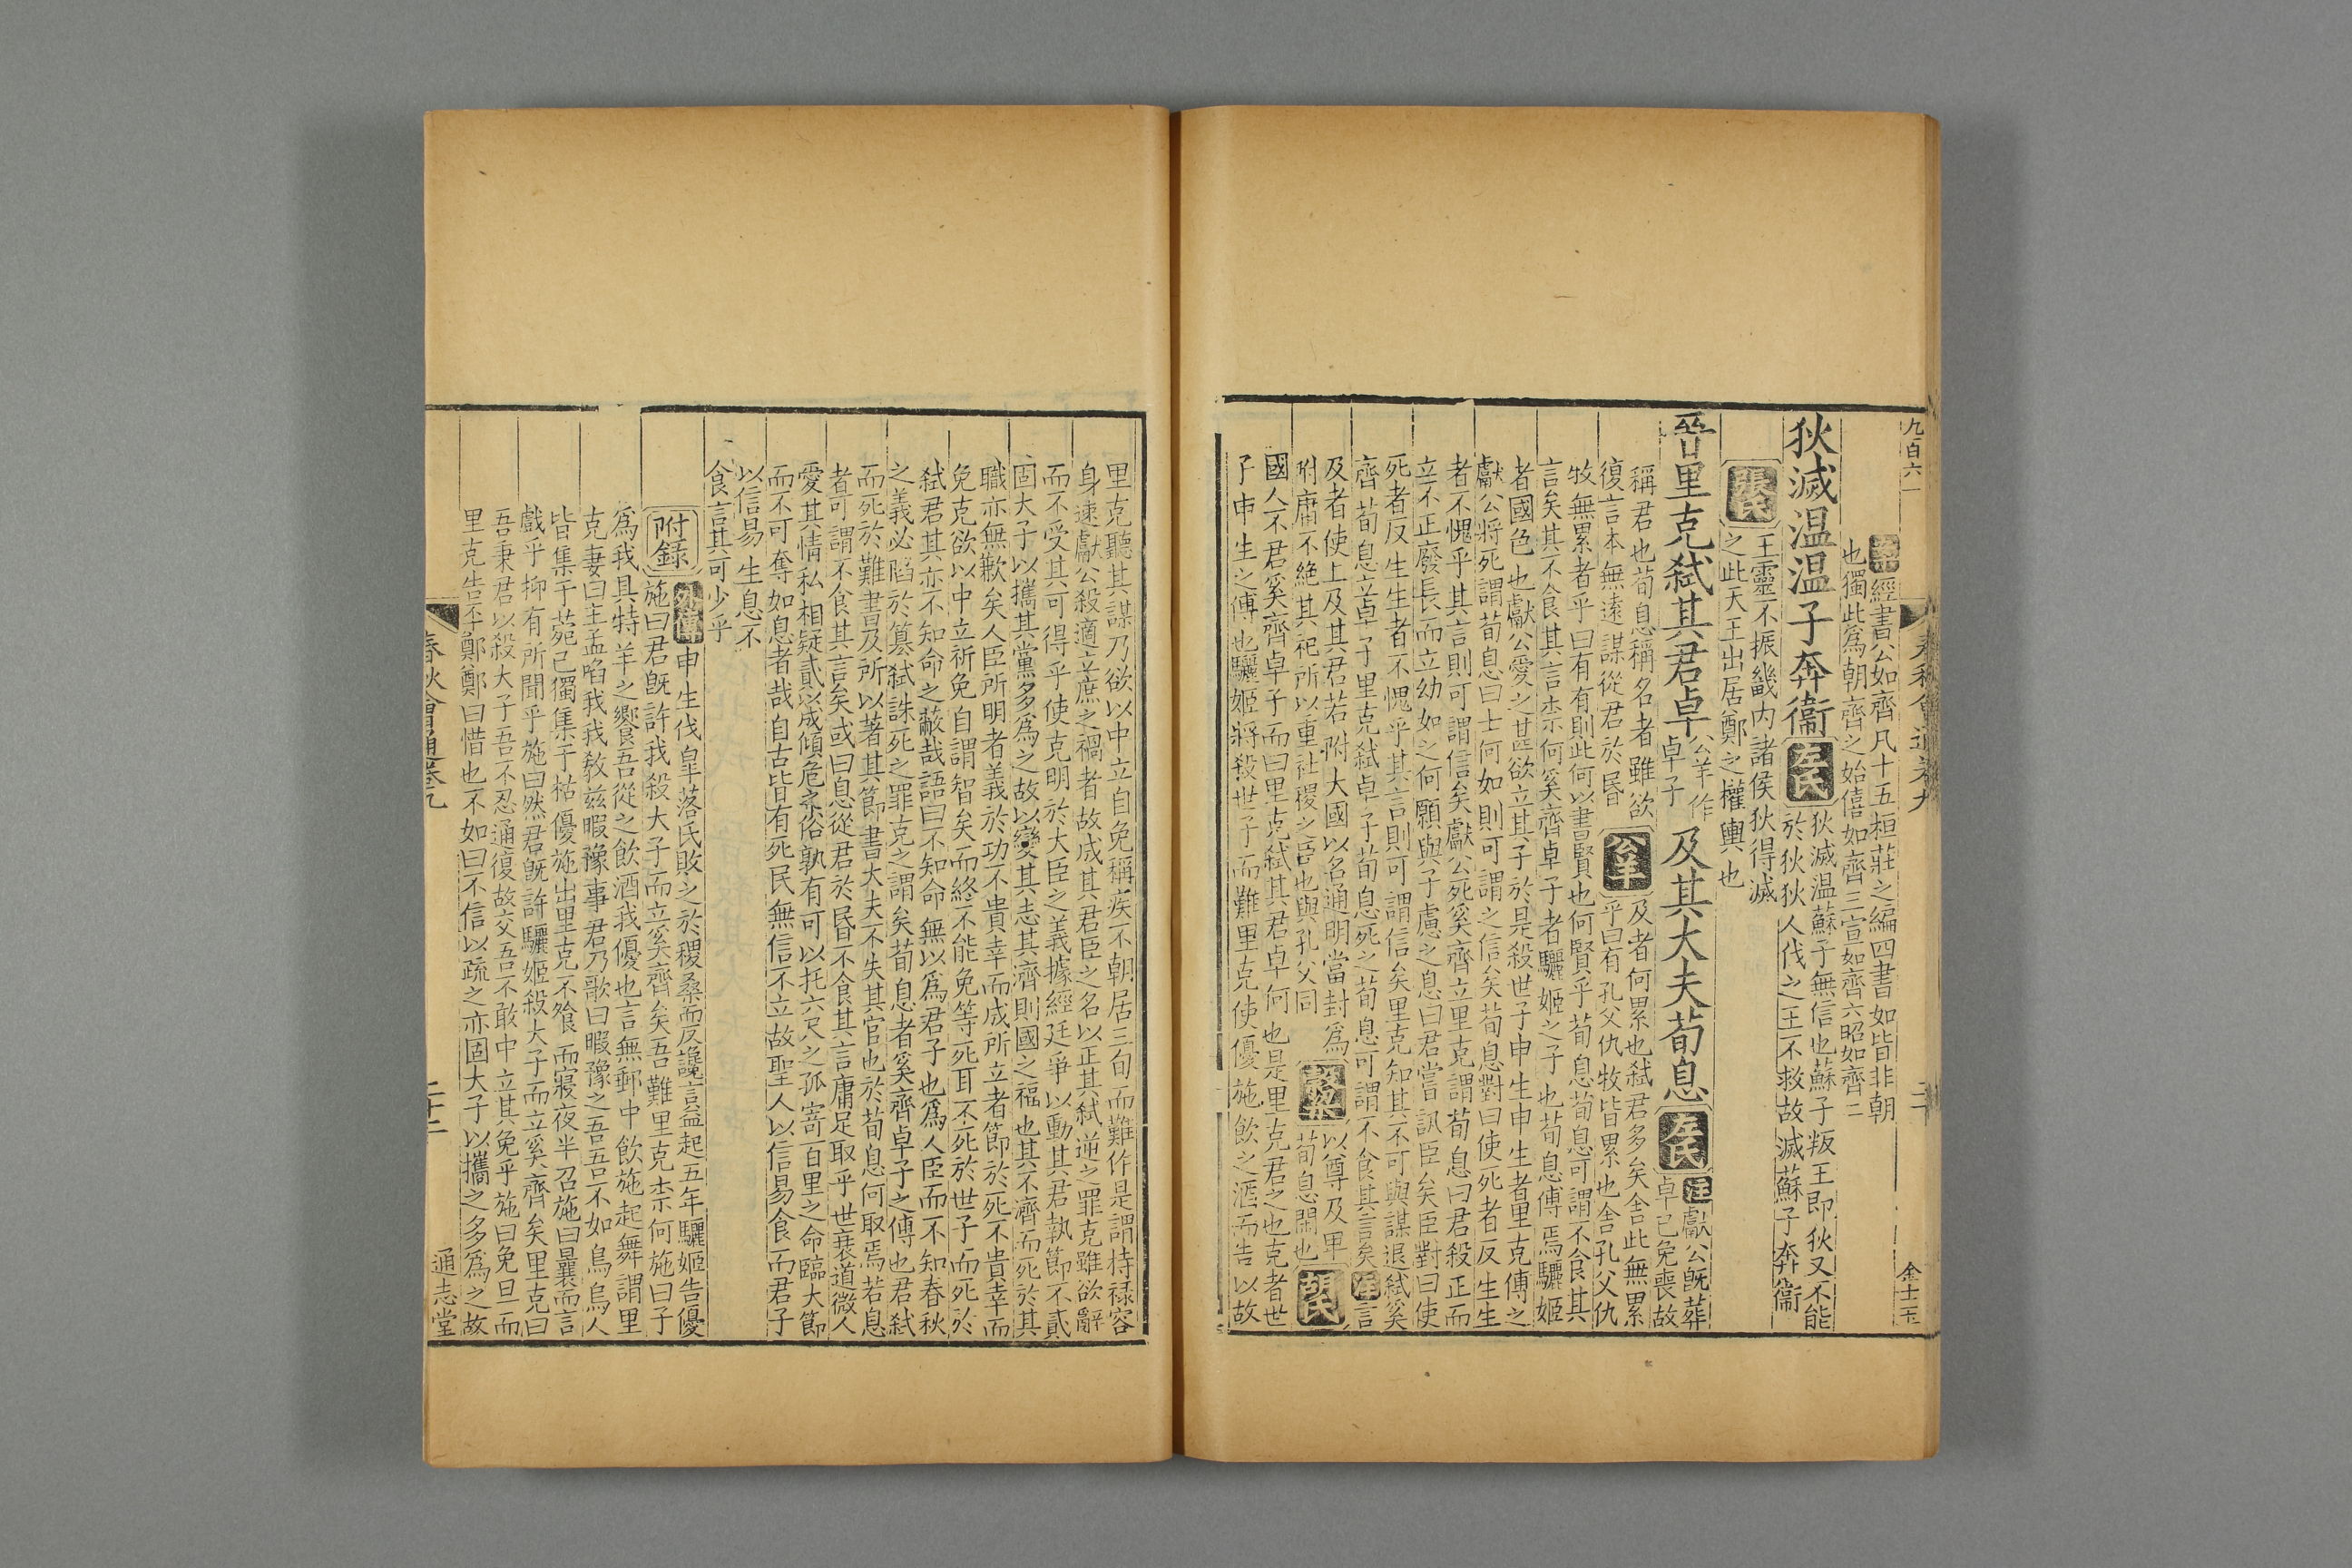 九百六一
經書公如齊凡十五桓莊之編四書如皆非朝
也獨此爲朝齊之始僖如齊三宣如齊六昭如齊二
狄滅温温子奔衞 左氏 狄滅温蘇子無信也蘇子叛王即狄又不能
於狄狄人伐之王不救故滅蘇子奔衞
張氏 王靈不振畿内諸侯狄得滅
之此天王出居鄭之權輿也
晉里克弑其君卓 公羊作
卓子
及其大夫荀息 左氏 注 獻公既葬
卓已免喪故
稱君也荀息稱名者雖欲
復言本無遠謀從君於昏
公羊 及者何累也弑君多矣舍此無累
乎曰有孔父仇牧皆累也舍孔父仇
牧無累者乎曰有有則此何以書賢也何賢乎荀息荀息可謂不食其
言矣其不食其言柰何奚齊卓子者驪姬之子也荀息傅焉驪姬
者國色也獻公愛之甚欲立其子於是殺世子申生申生者里克傅之
獻公將死謂荀息曰士何如則可謂之信矣荀息對曰使死者反生生
者不愧乎其言則可謂信矣獻公死奚齊立里克謂荀息曰君殺正而
立不正廢長而立幼如之何願與子慮之荀息曰君嘗訊臣矣臣對曰使
死者反生生者不愧乎其言則可謂信矣里克知其不可與謀退弑奚
齊荀息立卓子里克弑卓子荀息死之荀息可謂不食其言矣 注 言
及者使上及其君若附大國以名通明當封爲
附庸不絶其祀所以重社稷之臣也與孔父同
穀梁 以尊及卑
荀息閑也
胡氏
國人不君奚齊卓子而曰里克弑其君卓何也是里克君之也克者世
子申生之傅也驪姬將殺世子而難里克使優施飲之酒而告以故
里克聽其謀乃欲以中立自免稱疾不朝居三旬而難作是謂持祿容
身速獻公殺適立庶之禍者故成其君臣之名以正其弑逆之罪克雖欲辭
而不受其可得乎使克明於大臣之義據經廷爭以動其君執節不貳
固大子以攜其黨多爲之故以變其志其濟則國之福也其不濟而死於其
職亦無歉矣人臣所明者義於功不貴幸而成所立者節於死不貴幸而
免克欲以中立祈免自謂智矣而終不能免等死耳不死於世子而死於
弑君其亦不知命之蔽哉語曰不知命無以爲君子也爲人臣而不知春秋
之義必陷於簒弑誅死之罪克之謂矣荀息者奚齊卓子之傅也君弑
而死於難書及所以著其節書大夫不失其官也於荀息何取焉若息
者可謂不食其言矣或曰息從君於昏不食其言庸足取乎世衰道微人
愛其情私相疑貳以成傾危之俗孰有可以托六尺之孤寄百里之命臨大節
而不可奪如息者哉自古皆有死民無信不立故聖人以信易食而君子
以信易生息不
食言其可少乎
附錄 外傳 申生伐臯落氏敗之於稷桑而反讒言益起五年驪姬告優
施曰君既許我殺大子而立奚齊矣吾難里克柰何施曰子
爲我具特羊之饗吾從之飲酒我優也言無郵中飲施起舞謂里
克妻曰主孟啗我我教兹暇豫事君乃歌曰暇豫之吾吾不如鳥烏人
皆集于菀己獨集于枯優施出里克不飧而寢夜半召施曰曩而言
戲乎抑有所聞乎施曰然君既許驪姬殺大子而立奚齊矣里克曰
吾秉君以殺大子吾不忍通復故交吾不敢中立其免乎施曰免旦而
里克告丕鄭鄭曰惜也不如曰不信以疏之亦固大子以攜之多爲之故
春秋會通卷九
二十二
通志堂